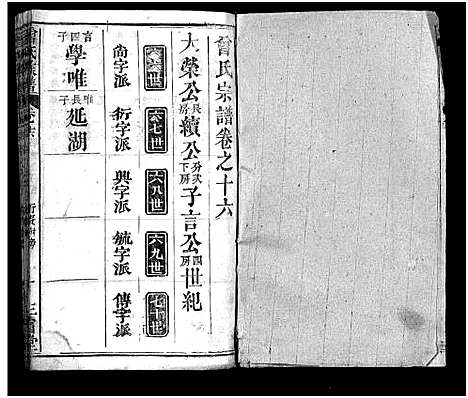 曾氏宗譜卷之十六
大榮公長房續公分貳下房子言公四房世紀
六六世 六七世 六八世 六九世 七十世
尚字派 衍字派 興字派 毓字派 傳字派
言四子 學唯
唯長子 延湖